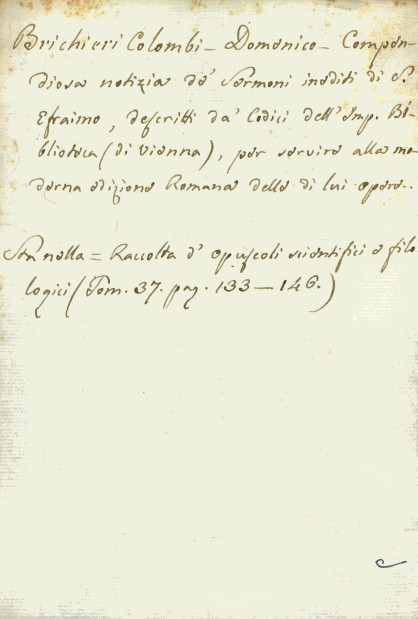 Brichieri Colombi - Domenico - Compen-
diosa notizia de' Sermoni inediti di S.
Efraimo, descritti da' Codici dell' Imp. Bi-
blioteca (di Vienna), per servire alla mo-
derna edizione Romana delle di lui opere..
Sta nella = Raccolta d' opuscoli scientifici e filo
logici (Tom. 37. pag. 133 — 146.)